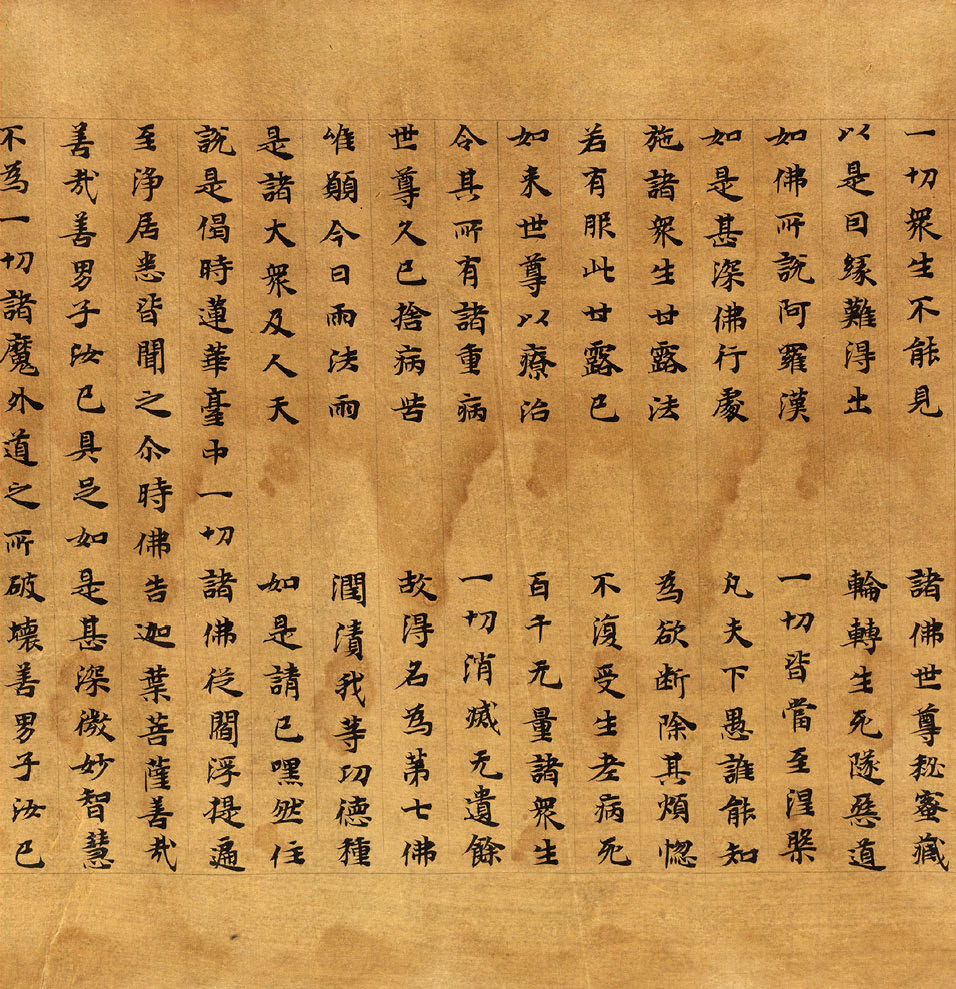 一切衆生不能見　諸佛世尊秘蜜藏
以是因縁難得出　輪轉生死墜惡道
如佛所說阿羅漢　一切皆當至涅槃
如是甚深佛行處　凡夫下愚誰能知
施諸衆生甘露法　為欲断除其煩惚
若有服此甘露已　不復受生老病死
如来世尊以療治　百千无量諸衆生
令其所有諸重病　一切消滅无遺餘
世尊久已捨病苦　故得名為苐七佛
唯願今日雨法雨　潤漬我等功德種
是諸大衆及人天　如是請已嘿然住
說是偈時蓮華臺中一切諸佛從閻浮提遍
至浄居悉皆聞之尒時佛告迦葉菩薩善哉
善哉善男子汝已具足如是甚深微妙智慧
不為一切諸魔外道之所破壞善男子汝已